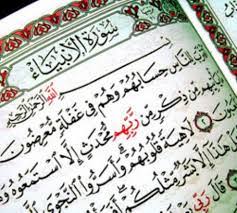 سُورَةُ الْأَنْبِيَاءِ
بِسْمِ اللَّهِ الرَّحْمَٰنِ الرَّحِيمِ
لِلنَّاسِ حِسَابُهُمْ وَهُمْ فِي غَفْلَةٍ مُّعْرِضُونَ
مِّن ذِكْرٍ مِّن رَّبِّهِم مُّحْدَثٍ إِلَّا اسْتَمَعُوهُ
لَاهِيَةً قُلُوبُهُمْ وَأَسَرُّوا النَّجْوَى
هَٰذَا إِلَّا بَشَرٌ مِّثْلُكُمْ
قَالَ رَبِّي